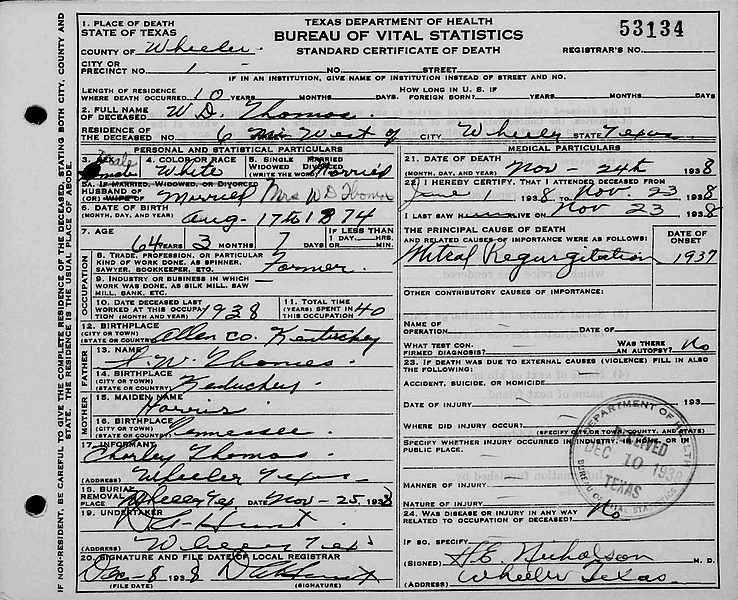 TEXAS DEPARTMENT OF HEALTH
BUREAU OF VITAL STATISTICS
STANDARD CERTIFICATE OF DEATH
53134
1. PLACE OF DEATH
STATE OF TEXAS
COUNTY OF Wheeler
REGISTRAR'S NO.
CITY OR PRECINCT NO. 1 NO. STREET
IF IN AN INSTITUTION, GIVE NAME OF INSTITUTION INSTEAD OF STREET AND NO.
LENGTH OF RESIDENCE WHERE DEATH OCCURRED 10 YEARS MONTHS DAYS HOW LONG IN U. S. IF FOREIGN BORN? YEARS MONTHS DAYS
2. FULL NAME OF DECEASED W D. Thomas
RESIDENCE OF THE DECEASED NO. 6 West of CITY Wheeler STATE Texas
PERSONAL AND STATISTICAL PARTICULARS
3. SEX
4. COLOR OR RACE White
5. SINGLE MARRIED WIDOWED DIVORCED (WRITE THE WORD) Married
5A. IF MARRIED, WIDOWED, OR DIVORCED
HUSBAND OF (OR) WIFE OF Married Mrs W D Thomas
6. DATE OF BIRTH (MONTH, DAY, AND YEAR) Aug - 17th 1874
7. AGE 64 YEARS 3 MONTHS 7 DAYS IF LESS THAN 1 DAY HRS. MIN.
OCCUPATION
8. TRADE, PROFESSION, OR PARTICULAR KIND OF WORK DONE, AS SPINNER, SAWYER, BOOKKEEPER, ETC. Farmer
9. INDUSTRY OR BUSINESS IN WHICH WORK WAS DONE, AS SILK MILL, SAW MILL, BANK, ETC.
10. DATE DECEASED LAST WORKED AT THIS OCCUPATION (MONTH AND YEAR) 1938
11. TOTAL TIME (YEARS) SPENT IN THIS OCCUPATION 40
12. BIRTHPLACE (CITY OR TOWN) (STATE OR COUNTRY) Allen Co. Kentuckey
FATHER
13. NAME W Thomas
14. BIRTHPLACE (CITY OR TOWN) (STATE OR COUNTRY) Kentuckey
MOTHER
15. MAIDEN NAME Harris
16. BIRTHPLACE (CITY OR TOWN) (STATE OR COUNTRY) Tennessee
17. INFORMANT Charley Thomas
(ADDRESS) Wheeler Texas
18. BURIAL REMOVAL PLACE Wheeler Tex DATE Nov - 25 1938
19. UNDERTAKER Hunt
(ADDRESS) Wheeler Tex
20. SIGNATURE AND FILE DATE OF LOCAL REGISTRAR
Dec - 8 1938
(FILE DATE) (SIGNATURE)
MEDICAL PARTICULARS
21. DATE OF DEATH (MONTH, DAY, AND YEAR) Nov - 24th 1938
22. I HEREBY CERTIFY, THAT I ATTENDED DECEASED FROM
June 1 1938 TO Nov. 23 1938
I LAST SAW ALIVE ON Nov 23 1938
THE PRINCIPAL CAUSE OF DEATH AND RELATED CAUSES OF IMPORTANCE WERE AS FOLLOWS:
DATE OF ONSET
Mitral Regurgitation 1937
OTHER CONTRIBUTORY CAUSES OF IMPORTANCE:
NAME OF OPERATION DATE OF
WHAT TEST CONFIRMED DIAGNOSIS? WAS THERE AN AUTOPSY? No
23. IF DEATH WAS DUE TO EXTERNAL CAUSES (VIOLENCE) FILL IN ALSO THE FOLLOWING:
ACCIDENT, SUICIDE, OR HOMICIDE
DATE OF INJURY 193
WHERE DID INJURY OCCUR?
(SPECIFY CITY OR TOWN, COUNTY, AND STATE)
SPECIFY WHETHER INJURY OCCURRED IN INDUSTRY, IN HOME, OR IN PUBLIC PLACE.
MANNER OF INJURY
NATURE OF INJURY
24. WAS DISEASE OR INJURY IN ANY WAY RELATED TO OCCUPATION OF DECEASED? No
IF SO, SPECIFY
(SIGNED) H.E. Nicholson M. D.
(ADDRESS) Wheeler Texas
DEPARTMENT OF HEALTH
RECEIVED
DEC 10 1938
TEXAS
BUREAU OF VITAL STATISTICS
IF NON-RESIDENT, BE CAREFUL TO GIVE THE COMPLETE RESIDENCE OF THE DECEASED, STATING BOTH CITY, COUNTY AND
STATE. THE RESIDENCE IS THE USUAL PLACE OF ABODE.